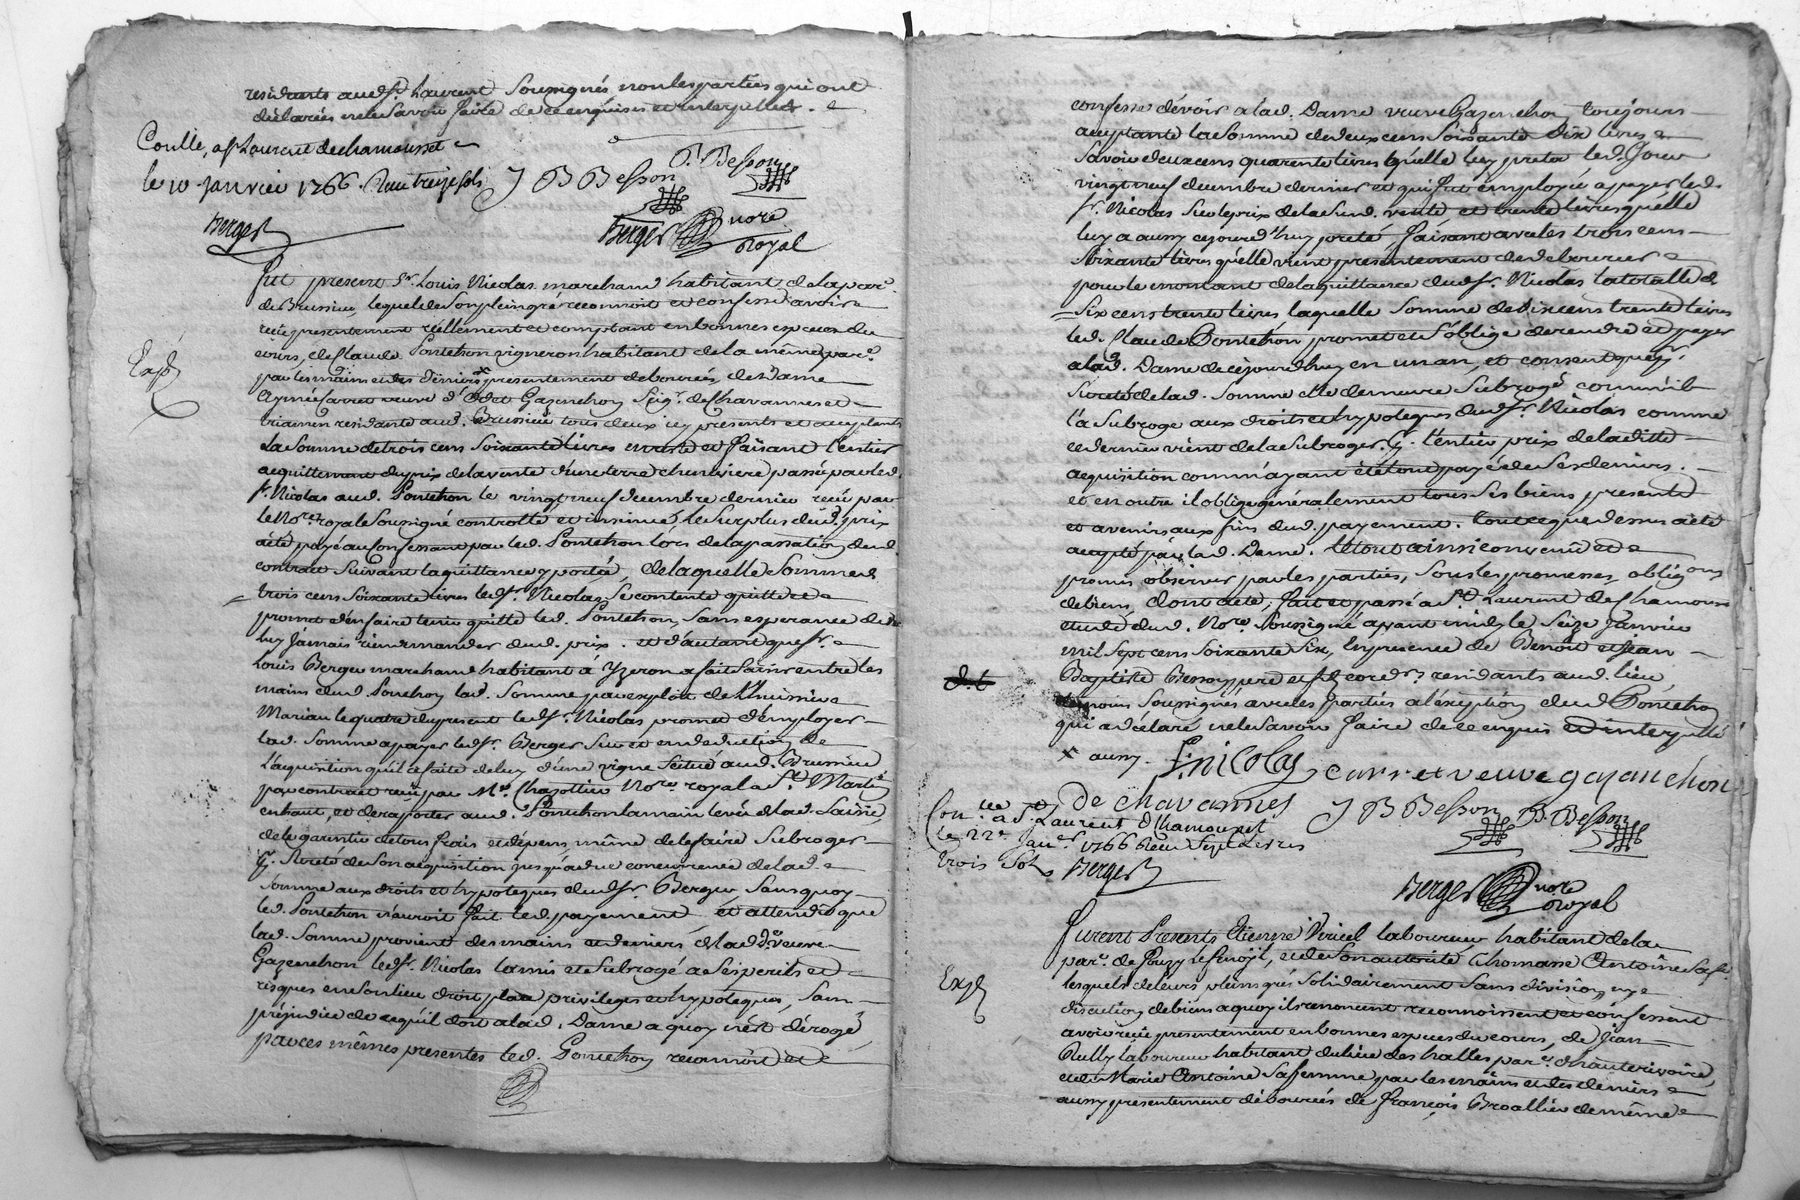 residants aud. St. Laurent Soussignés non les parties qui ont
déclarées ne le Savoir faire de ce enquises et interpellées.
Conllé, a St Laurent de chamousset
le 10 janvier 1766. Reçu treize sols
P. Besson
J B Besson
Berger
Berger nore
Royal
Fut present Sr. Louis Nicolas marchand habitant de la parr.
de Brussieu lequel de Son plein gré reconnoit et confesse avoir
reçu presentement réellement et comptant en bonnes especes du
Exp.
cours, de Claude Ponteton vigneron habitant de la même parr.
par les mains et des deniers × presentement deboursés de Dame
Aymée Carret veuve d'Odet Gazanchon Seigr. de Chavannes et
residante aud. Brussieu tous deux icy presents et acceptants
La Somme de trois cens Soixante livres en reste et faisant l'entier
acquittement du prix de la vente d'une terre cheneviere passée par led.
Sr. Nicolas aud. Ponteton le vingt neuf decembre dernier reçu par
le Nore. royal Soussigné controllé et insinué, le Surplus dud. prix
aété payé au Confessant par led. Ponteton lors de la passation dud.
contrat Suivant la quittance y portée, de laquelle Somme de
trois cens Soixante livres led. Sr. Nicolas, Se contente quitte et
promet d'en faire tenir quitte led. Ponteton, Sans esperance de
luy jamais rien demander dud. prix. et d'autant que Sr.
Louis Berger marchand habitant à Yzeron a fait Saisir entre les
mains dud. Ponteton lad. Somme par exploit de l'huissier
Marian le quatre du present led. Sr. Nicolas promet d'employer
lad. Somme a payer led. Sr. Berger Sur et en deduction de
L'acquisition qu'il a faite de luy d'une vigne Scitué aud. Brussieu
par contrat reçu par Me. Chazottier Nore. royal a St. Martin
enhaut, et de raporter aud. Ponteton la main levée de lad. Saisie,
de le garentir de tous frais et dépens, même de le faire Subroger
pr. Sureté de Son acquisition jusqu'a due concurrence de lad.
Somme aux droits et hypoteques dud. Sr. Berger Sans quoy
led. Ponteton n'auroit fait led. payement et attendu que
lad. Somme provient des mains et deniers de lad. De. veuve
Gazanchon led. Sr. Nicolas l'a mis et Subrogé a Ses perils et
risques en Son lieu droit place privileges et hypoteques, Sans
préjudice de ce qu'il doit a lad. Dame a quoy n'est dérogé
par ces mêmes presentes led. Ponteton reconnoit et
confesse devoir a lad. Dame veuve Gazanchon toujours
acceptante la Somme de deux cens Soixante dix livres
Savoir deux cens quarente livres qu'elle luy preta led. jour
vingt neuf decembre dernier et qui fut employée a payer led.
Sr. Nicolas Sur le prix de la Susd. vente et trente livres qu'elle
luy a aussy cejourd'huy preté, faisant avec les trois cens
Soixante livres qu'elle vient presentement de debourcer
pour le montant de la quittance dud. Sr. Nicolas la totalle de
Six cens trente livres laquelle Somme de Six cens trente livres
led. Claude Ponteton promet et S'oblige de rendre et payer
a lad. Dame de cejourd'huy en un an, et consent que pr.
Sureté de lad. Somme elle demeure Subrogé comme il
l'a Subroge aux droits et hypoteques dud. Sr. Nicolas comme
ce dernier vient de la Subroger. pr. l'entier prix de la ditte
acquisition comm'ayant été tout payé de Ses deniers.
et en outre il oblige généralement tous Ses biens presents
et avenirs aux fins dud. payement. tout ce que dessus aété
accepté par lad. Dame. le tout ainsi convenu et
promis observer par les parties, Sous les promesses, obligons
de biens, dont acte, fait et passé a St. Laurent de Chamousset
etude dud. Nore. Soussigné avant midy le Seize Janvier
mil Sept cens Soixante Six, En presence de Benoit et Jean
Baptiste Besson pere et fils cordrs. residants aud. lieu
témoins Soussignés avec les parties a l'exeption dud. Ponteton
qui a déclaré ne le Savoir faire de ce enquis et interpellé
× aussy. L. nicolas carret veuve gazanchon
de chavannes J B Besson P. Besson
Conllé a St. Laurent d Chamousset
le 22e Janer. 1766 Reçu Sept Livres
trois Sols Berger
Berger nore
royal
Furent Presents Etienne Viricel laboureur habitant de la
parr. de Souzy L'argentiere, et de Son autorité Thomasse Antoine Sa fe.
Exp.
lesquels de leurs pleins grés Solidairement Sans division ny
discution de biens a quoy ils renoncent reconnoissent et confessent
avoir reçu presentement en bonnes especes du cours, de Jean
Rully laboureur habitant du lieu des halles parr. d'hauterivoire,
et de Marie Antoine Sa femme par les mains et des deniers
aussy presentement débourcés de françois Broallier de même